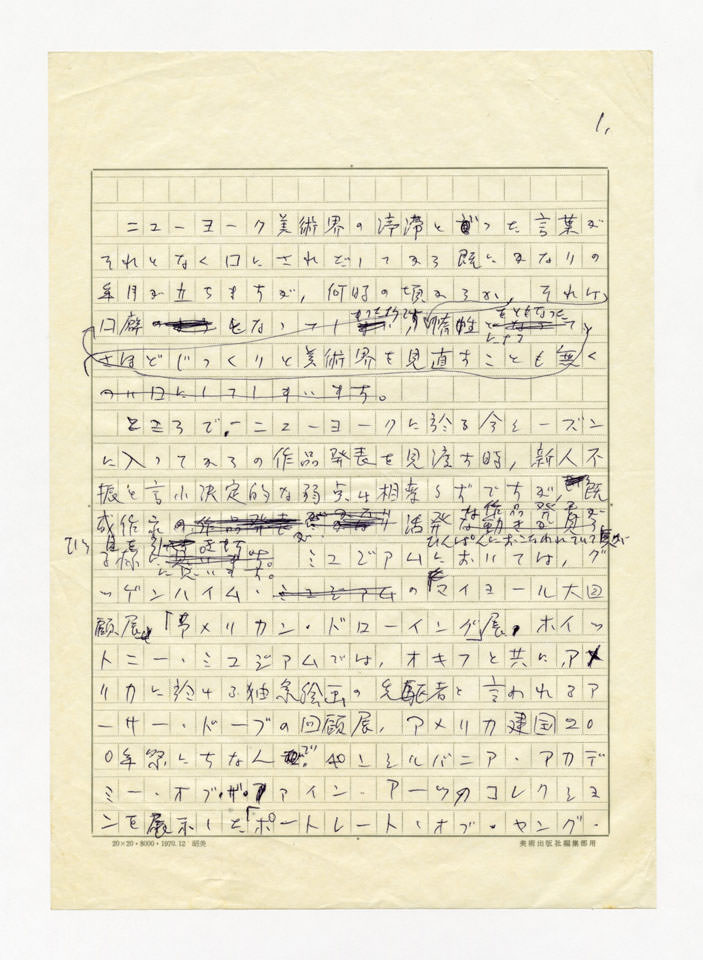 1,
ニューヨーク美術界の停滞と言った言葉が
それとなく口にされだしてから既にかなりの
年月が立ちますが、何時の頃からか、それは
口癖 となって 惰性
さほどじっくりと美術界を見直すことも無く
口にしてしまいます。
ところで、ニューヨークに於る今シーズン
に入ってからの作品発表を見渡す時、新人不
振と言ふ決定的な弱点は相変らずですが、既
成作家の作品発表が 活発な動き
ひんぱんにおこなわれていて
に見います。 ミュジアムにおいては、グ
ッゲンハイム・ミュジアムのマイヨール大回
顧展、「アメリカン・ドローイング」展、ホイッ
トニー・ミュジアムでは、オキフと共に、アメ
リカに於ける抽象絵画の先駆者と言われるア
ーサー・ドーブの回顧展、アメリカ建国20
0年祭にちなんで、ペンシルバニア・アカデ
ミー・オブ・ザ・ファイン・アーツのコレクショ
ンを展示した「ポートレート・オブ・ヤング・
20×20・8000・1970.12 昭美
美術出版社編集部用